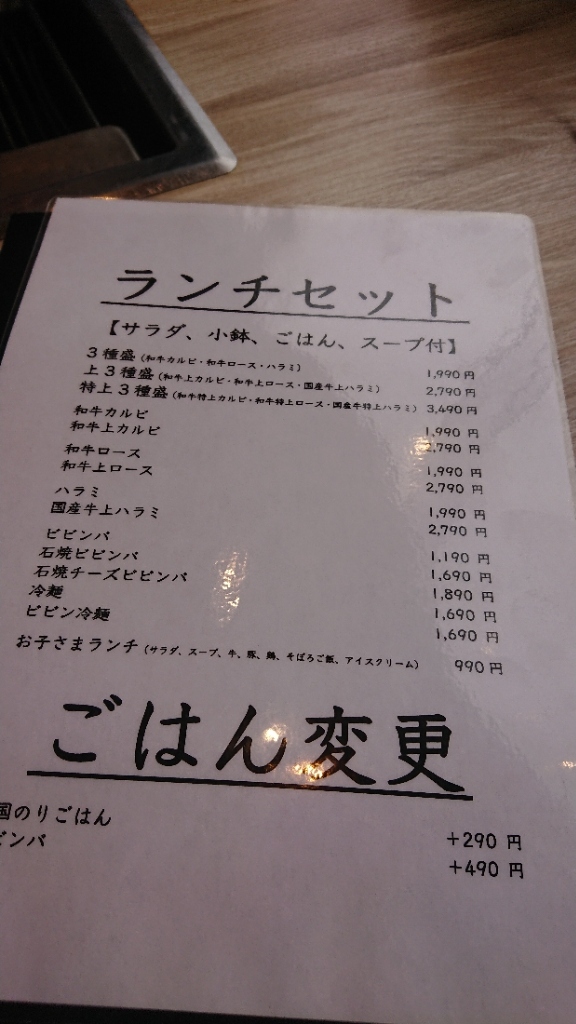 ランチセット
【サラダ、小鉢、ごはん、スープ付】
3種盛(和牛カルビ・和牛ロース・ハラミ) 1,990円
上3種盛(和牛上カルビ・和牛上ロース・国産牛上ハラミ) 2,790円
特上3種盛(和牛特上カルビ・和牛特上ロース・国産牛特上ハラミ) 3,490円
和牛カルビ 1,990円
和牛上カルビ 2,790円
和牛ロース 1,990円
和牛上ロース 2,790円
ハラミ 1,990円
国産牛上ハラミ 2,790円
ビビンバ 1,190円
石焼ビビンバ 1,690円
石焼チーズビビンバ 1,890円
冷麺 1,690円
ビビン冷麺 1,690円
お子さまランチ(サラダ、スープ、牛、豚、鶏、そぼろご飯、アイスクリーム) 990円
ごはん変更
国のりごはん +290円
ビンバ +490円